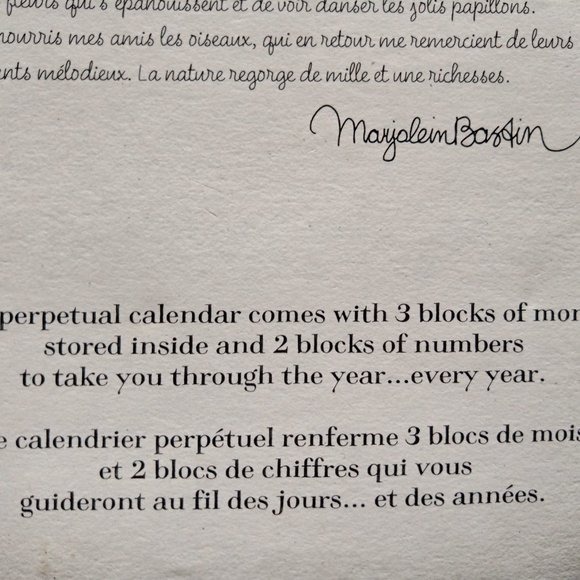 fleurs qui s'épanouissent et de voir danser les jolis papillons.
nourris mes amis les oiseaux, qui en retour me remercient de leurs
nts mélodieux. La nature regorge de mille et une richesses.
Marjolein Bastin
perpetual calendar comes with 3 blocks of mon
stored inside and 2 blocks of numbers
to take you through the year...every year.
e calendrier perpétuel renferme 3 blocs de mois
et 2 blocs de chiffres qui vous
guideront au fil des jours... et des années.